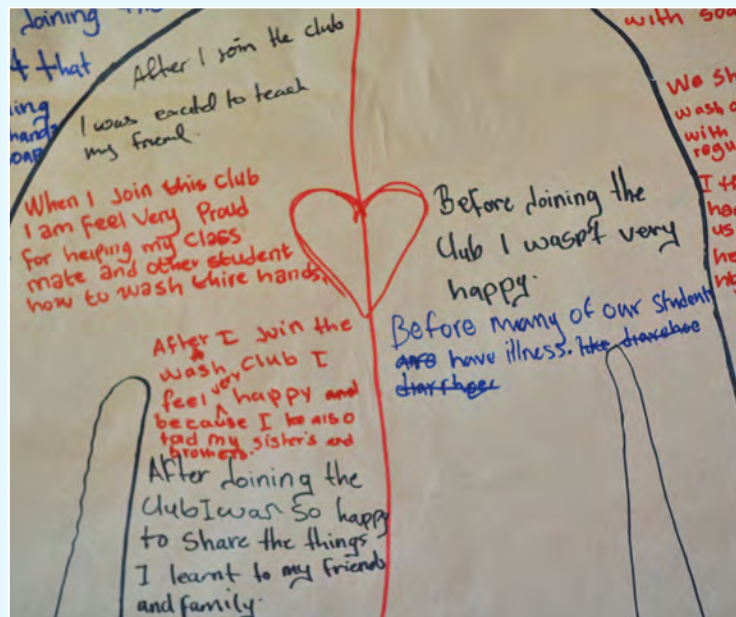 Joining the
t that
ing
hands
soap
After I join the club
I was excited to teach
my friend.
When I Join this Club
I am feel Very Proud
for helping my Class
make and other student
how to wash thire hands.
After I Join the
wash Club I
feel very happy and
because I be also
tod my sister's and
brothers.
After Joining the
Club I was So happy
to Share the things
I learnt to my friends
and family.
Before Joining the
Club I wasn't very
happy.
Before many of our Student
are have illness. like diarehoe
diarrhoer
with soa
We Sh
wash o
with
regu
I t
ha
us
he